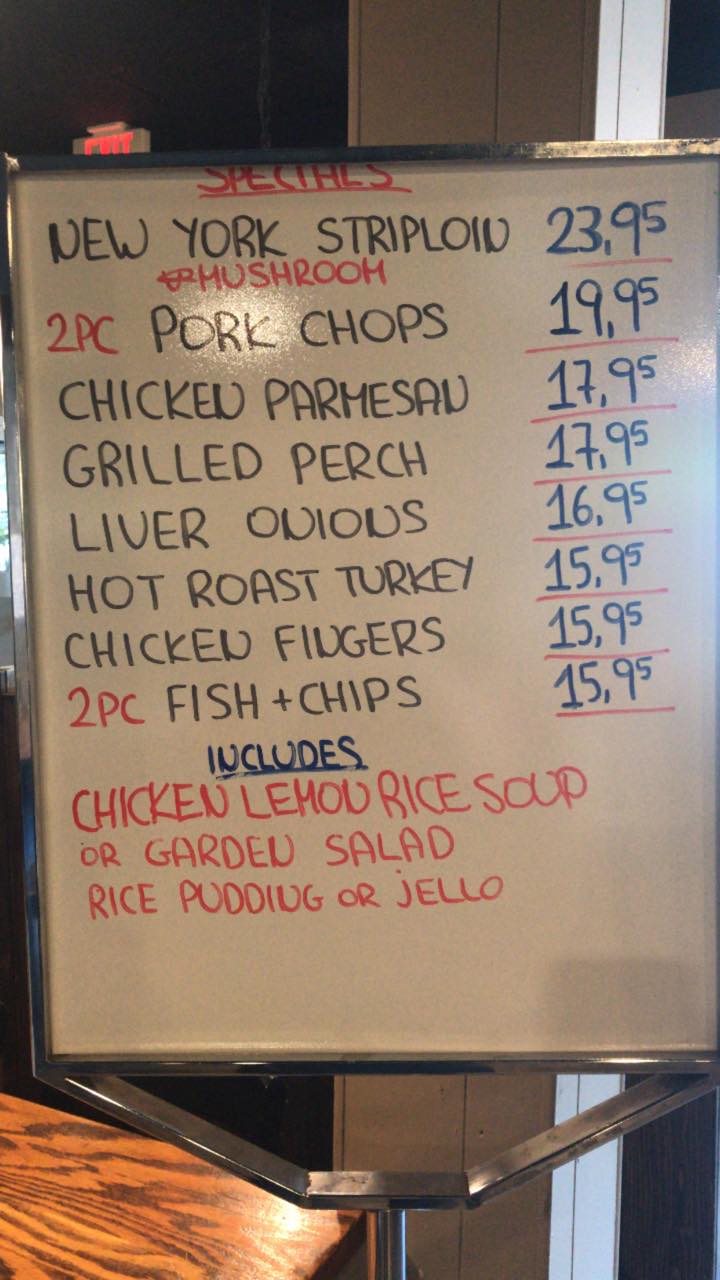 EXIT
SPECIALS
NEW YORK STRIPLOIN 23,95
MUSHROOM
2PC PORK CHOPS 19,95
CHICKEN PARMESAN 17,95
GRILLED PERCH 17,95
LIVER ONIONS 16,95
HOT ROAST TURKEY 15,95
CHICKEN FINGERS 15,95
2PC FISH + CHIPS 15,95
INCLUDES
CHICKEN LEMON RICE SOUP
OR GARDEN SALAD
RICE PUDDING OR JELLO